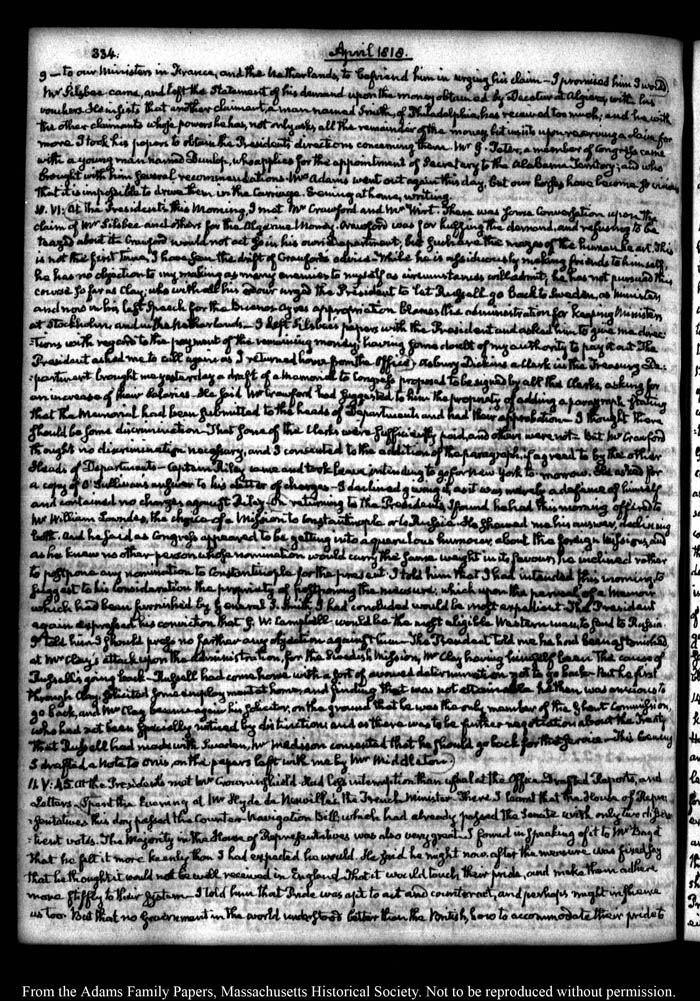 334. April 1818.
9 — to our Ministers in France, and the Netherlands, to befriend him in urging his claim — I promised him I would.
Mr Silsbee came, and left the Statement of his demand upon the money obtained by Decatur at Algiers, with his
vouchers. He insists that another claimant, a man named Smith, of Philadelphia, has received too much, and he with
the other claimants whose powers he has, not only asks all the remainder of the money, but insists upon reserving a claim for
more. I took his papers to obtain the President's directions concerning them. Mr J. Tyler, a member of Congress came
with a young man named Dunlop, who applies for the appointment of Secretary to the Alabama Territory; and who
brought with him several recommendations. Mrs Adams went out again this day, but our horses have become so
that it is impossible to drive them in the Carriage. Evening at home, writing.
10. VI: At the President's this Morning, I met Mr Crawford and Mr Wirt. There was some Conversation upon the
claim of Mr Silsbee and others for the Algerine Money. Crawford was for refusing the demand, and refusing to be
teazed about it. Crawford would not act so in his own Department, but such are the mazes of the human heart. This
is not the first time, I have seen the drift of Crawford's advice. While he is assiduously making friends to himself,
he has no objection to my making as many enemies to myself as circumstances will admit; he has not pursued this
course so far as Clay; who with all his ardour urged the President to let Russell go back to Sweden, as minister
and now in his last Speech for the Buenos Ayres appropriation blames the administration for keeping Ministers
at Stockholm, and in the Netherlands. — I left Silsbee's papers with the President and asked him to give me direc-
tions with regard to the payment of the remaining money; having some doubt of my authority to pay it out. The
President asked me to call again as I returned home from the Office. Asbury Dickins a Clerk in the Treasury De-
partment brought me yesterday a draft of a Memorial to Congress proposed to be signed by all the Clerks, asking for
an increase of their Salaries. He said Mr Crawford had suggested to him the propriety of adding a paragraph, stating
that the Memorial had been submitted to the heads of Departments and had their approbation — I thought there
should be some discrimination — That some of the Clerks were sufficiently paid, and others were not. But Mr Crawford
thought no discrimination necessary, and I consented to the addition of the paragraph, if agreed to by the other
Heads of Departments — Captain Riley came and took leave, intending to go for New York to-morrow. He asked for
a copy of O'Sullivan's answer to his letter of charges — I declined giving it, as it was merely a defence of himself
and contained no charges against Riley. On returning to the President's, I found he had this morning offered to
Mr William Lowndes, the choice of a Mission to Constantinople or to Russia. He showed me his answer, declining
both. And he said as Congress appeared to be getting into a querulous humour about the foreign Missions, and
as he knew no other person whose nomination would carry the same weight in its favour, he inclined rather
to postpone any nomination to Constantinople for the present. I told him that I had intended this morning to
suggest to his consideration the propriety of postponing the measure; which upon the perusal of a Memoir
which had been furnished by General S. Smith, I had concluded would be most expedient. The President
again expressed his conviction that G. W. Campbell would be the most eligible Western man, to send to Russia.
I told him I should press no farther any objection against him. The President told me he had been astonished
at Mr Clay's attack upon the administration, for the Swedish Mission, Mr Clay having himself been the cause of
Russell's going back — Russell had come home with a sort of avowed determination not to go back. But he first
through Clay, solicited some employment at home, and finding that was not attainable he then was anxious to
go back, and Mr Clay became again his solicitor, on the ground that he was the only member of the Ghent Commission,
who had not been specially noticed by distinction; and as there was to be further negotiation about the Treaty
that Russell had made with Sweden, Mr Madison consented that he should go back for that service — This Evening
I drafted a Note to Onis, on the papers left with me by Mr Middleton.
11. V.45. At the President's met Mr Crowninshield. Had less interruption than usual at the Office. Drafted Reports, and
Letters. Spent the Evening at Mr Hyde de Neuville's, the French Minister. There I learnt that the House of Repre-
sentatives this day passed the Counter-Navigation Bill, which had already passed the Senate with only two dissen-
tient votes. The Majority in the House of Representatives was also very great. I found in speaking of it to Mr Bagot
that he felt it more keenly than I had expected he would. He said he might now, after the measure was fixed, say
that he thought it would not be well received in England. That it would touch their pride, and make them adhere
more stiffly to their System — I told him that Pride was apt to act and counteract, and perhaps might influence
us too. But that no Government in the world understood better than the British, how to accommodate their pride to
From the Adams Family Papers, Massachusetts Historical Society. Not to be reproduced without permission.